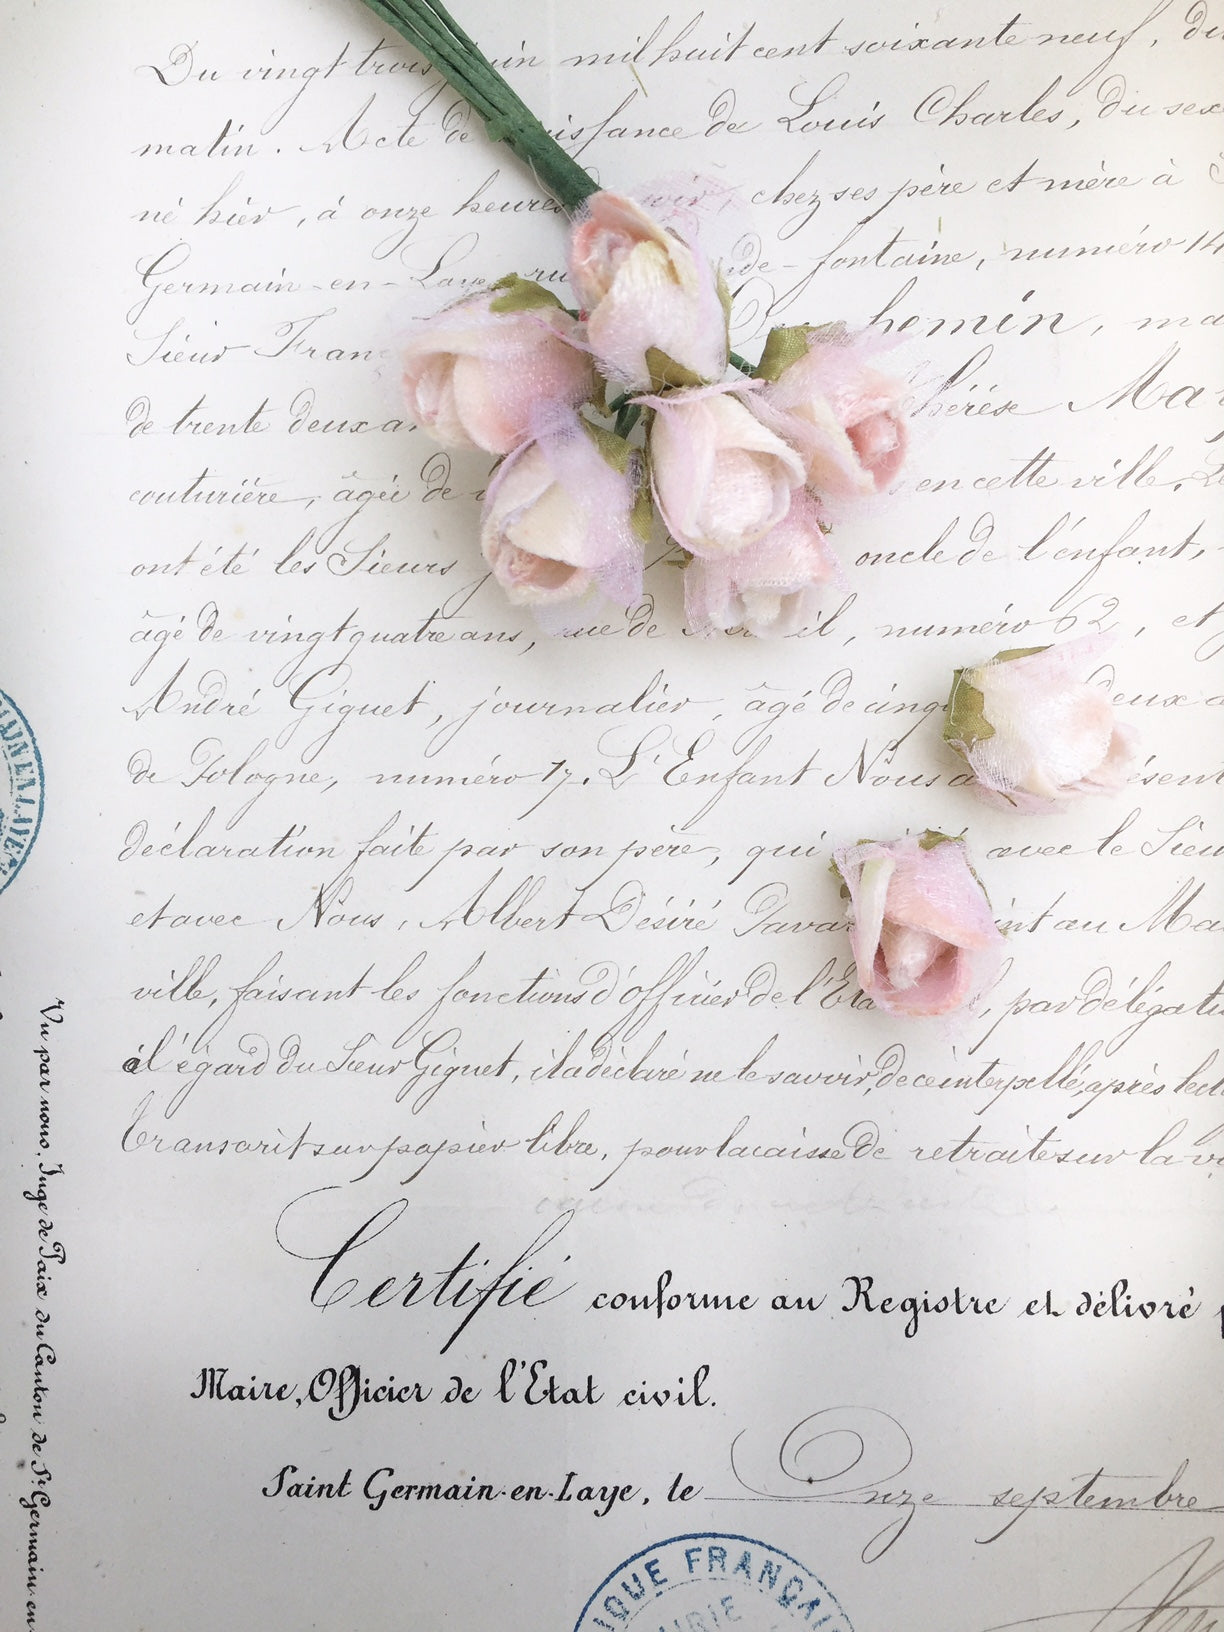 Du vingt trois juin mil huit cent soixante neuf, du
matin. Acte de naissance de Louis Charles, du sexe
né hier, à onze heures soir, chez ses père et mère à
Germain-en-Laye, fontaine, numéro 14
Sieur homin, ma
de trente deux Thérèse
couturière, âgée de en cette ville. Le
ont été les Sieurs oncle de l'enfant,
âgé de vingt quatre ans, rue de numéro 62, et
André Giguet, journalier, âgé de deux
de Pologne, numéro 17. L'Enfant Nous a
déclaration faite par son père, qui avec le Sieu
et avec Nous, Albert Désiré au Ma
ville, faisant les fonctions d'officier de l'Eta , par délégati
à l'égard du Sieur Giguet, il a déclaré ne le savoir, de ce interpellé, après lect
Transcrit sur papier libre, pour la caisse de retraite sur la vi
Certifié conforme au Registre et délivré
Maire, Officier de l'Etat civil.
Saint Germain-en-Laye, le Onze septembre
IQUE FRANÇAI
IRIE
ENLAYE
Vu par nous, Juge de Paix du Canton de St Germain-en